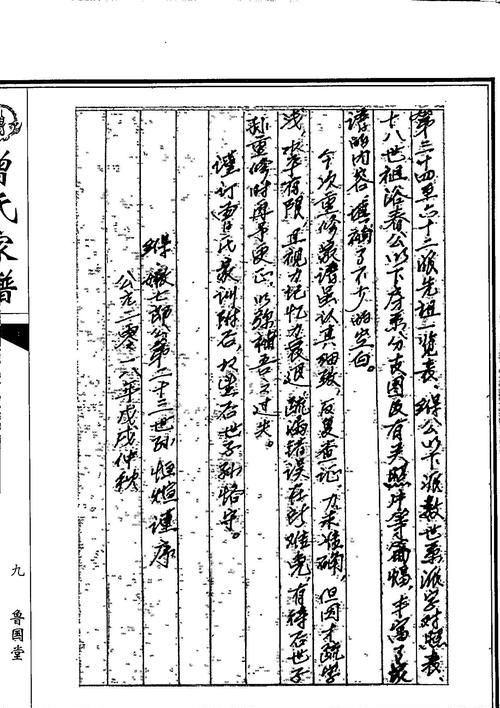 第三十四至六十三派先祖一览表、缑公以下派数世系派字对照表、
十八世祖浴春公以下房系分支图及有关照片等篇幅，丰富了故
谱的内容，填补了不少的空白。
今次重修家谱虽认真细致，反复查证，力求准确，但因才疏学
浅，水平有限，且视力记忆力衰退，疏漏错误在所难免，有待后世子
孙重修时再予更正，以弥补吾之过失。
谨订曾氏家训附后，以望后世子孙恪守。
七郎公第二十三世孙 恒煊 谨序
公元二零一八年戊戌仲秋
曾氏家谱
九
鲁国堂